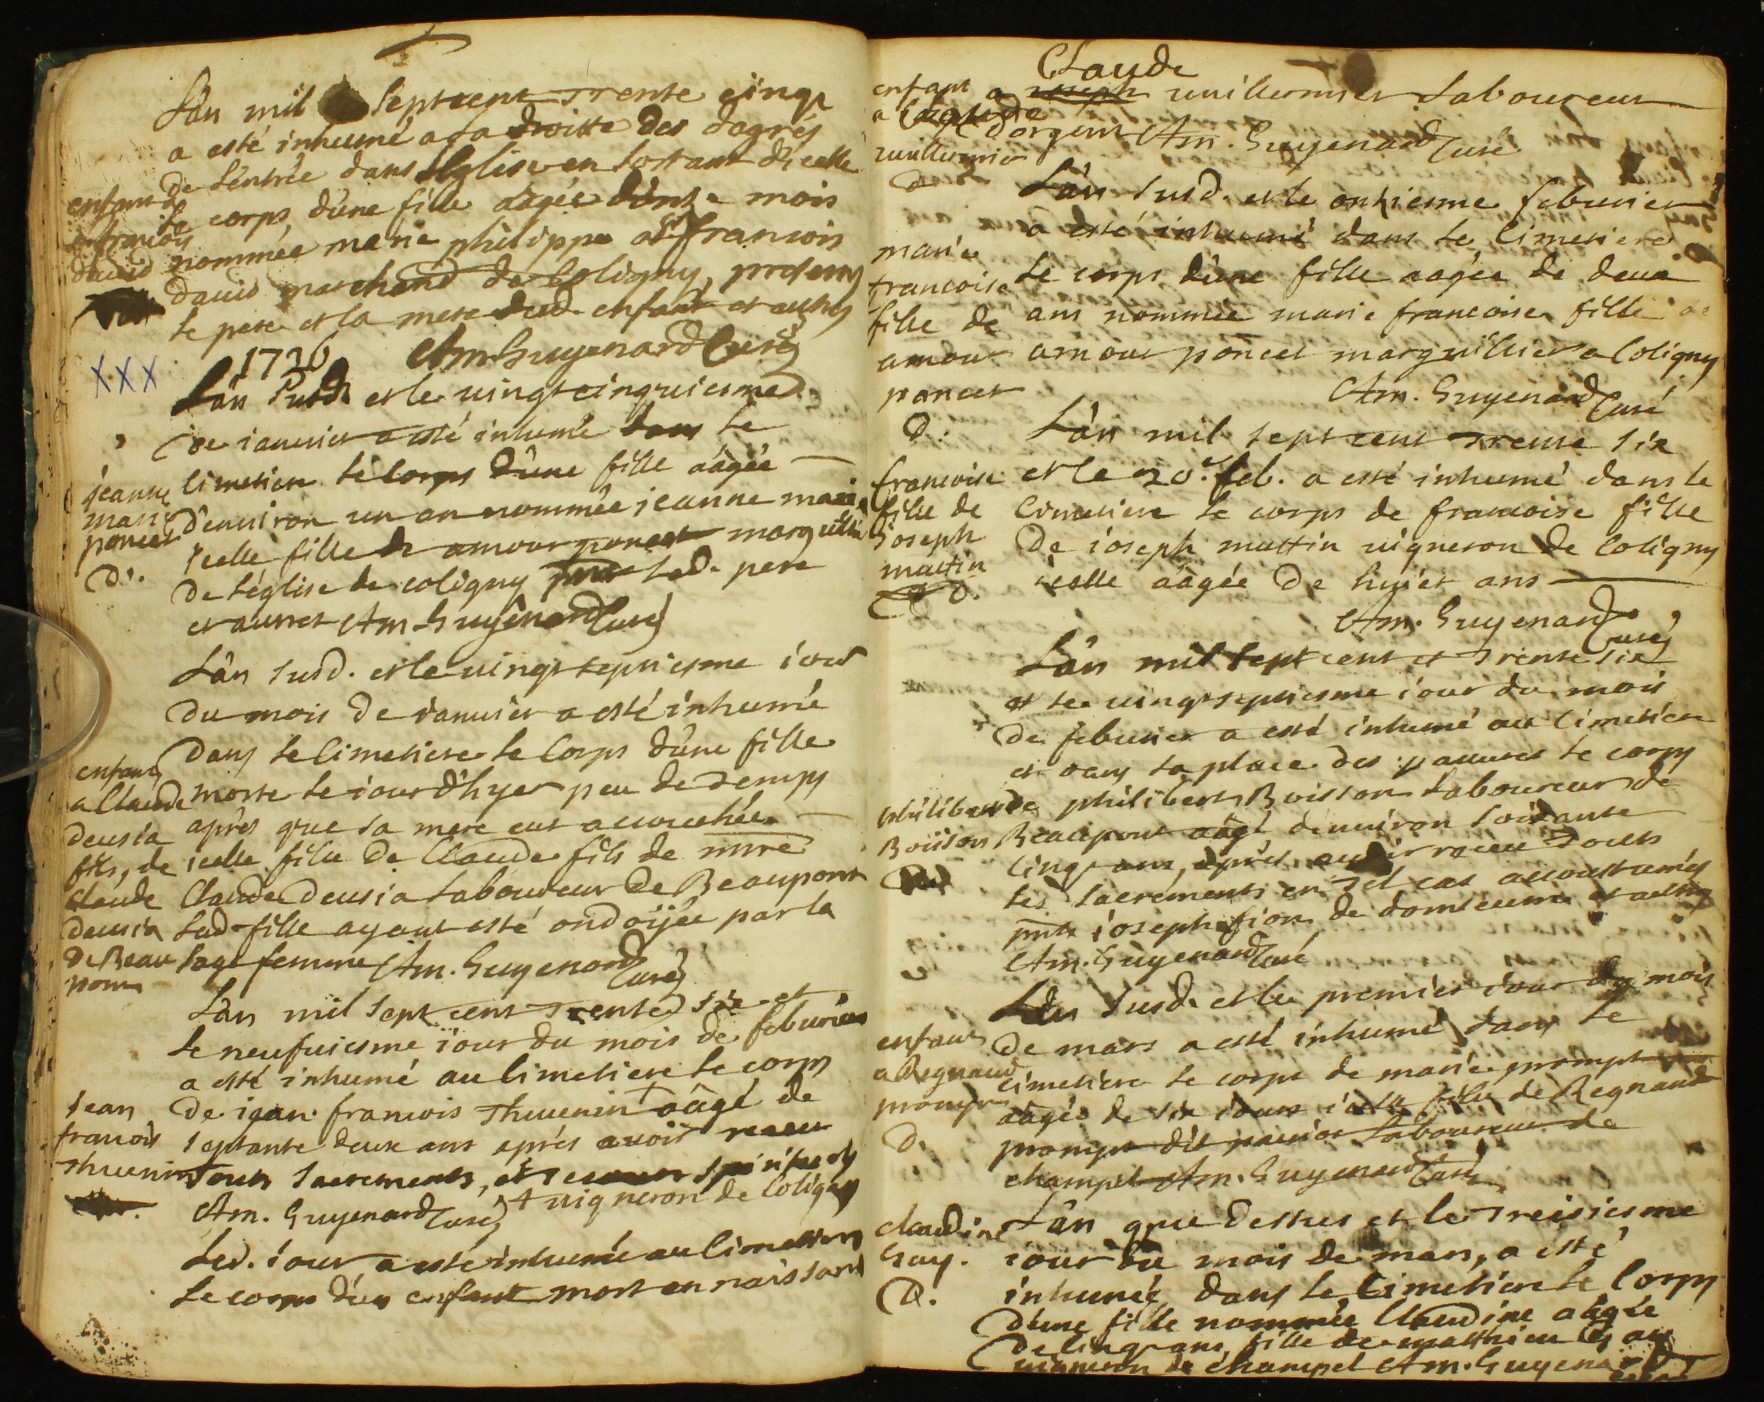 L'an mil sept cent trente cinq
a esté inhumé a la droitte des dégrés
de l'entrée dans l'Eglise en sortant d'icelle
enfant de
le corps d'une fille aagée d'onze mois
a francois
nommée marie philippe a francois
david
david marchand de Coligny, presents
le pere et la mere dud. enfant et autres
1736 Am. Guyenard Curé
XXX
L'an susd. et le vingt cinquiesme
de ianvier a esté inhumé dans le
jeanne
cimetiere le corps d'une fille aagée
marie
d'environ un an nommée jeanne marie
poncet
icelle fille de amour poncet marguillier
D.
de l'église de coligny led. pere
et autres Am. Guyenard Curé
L'an susd. et le vingt septiesme iour
du mois de ianvier a esté inhumé
dans le cimetiere le corps d'une fille
enfant
a Claude
morte le iourd'hyer peu de temps
deusia
aprés que sa mere eut accouchée
fils, de
icelle fille de Claude fils de
Claude
Claude Deusia laboureur de Beaupont
deusia
lad. fille ayant esté ondoijée par la
de Beau
sage femme Am. Guyenard Curé
pont
L'an mil sept cent trente six et
le neufuiesme iour du mois de feburier
a esté inhumé au cimetiere le corps
jean
de jean francois Thevenin aâgé de
francois
septante deux ans aprés avoir receu
Thevenin
tous sacrements, et secours spirituels
Am. Guyenard Curé + vigneron de Coligny
Led. iour a esté inhumé au cimetiere
le corps d'un enfant mort en naissant
Claude
enfant
a joseph vuillermier laboureur
a Claude
d'orgent Am. Guyenard Curé
vuillermier
D
L'an susd. et le onziesme feburier
a esté inhumé dans le cimetiere
marie
francoise
le corps d'une fille aagée de deux
fille de
ans nommée marie francoise fille de
amour
amour poncet marguillier a Coligny
poncet
Am. Guyenard Curé
D.
L'an mil sept cent trente six
francoise
et le 20e. feb. a esté inhumé dans le
fille de
Cimetiere le corps de francoise fille
joseph
de ioseph mattin vigneron de Coligny
mattin
icelle aâgée de huict ans
D.
Am. Guyenard Curé
L'an mil sept cent et trente six
et le vingt septiesme iour du mois
de feburier a esté inhumé au cimetiere
et dans la place des pauvres le corps
philibert
de philibert Buisson laboureur de
Boisson
Beaupont aâgé d'environ soixante
cinq ans, aprés avoir receu tous
les sacrements en tel cas accoustumés
pnts ioseph fion de domseure et aultres
Am. Guyenard Curé
L'an susd. et le premier iour du mois
enfant
de mars a esté inhumé dans le
a Regnaud
cimetiere le corps de marie prompt
prompt
aâgée de six iours icelle fille de Regnaud
D.
prompt dit laboureur de
champel Am. Guyenard Curé
claudine
L'an que dessus et le treisiesme
Gay.
iour du mois de mars, a esté
D.
inhumée dans le Cimetiere le Corps
d'une fille nommée Claudine aâgée
de cinq ans, fille de matthieu Gay
vigneron de champel Am. Guyenard